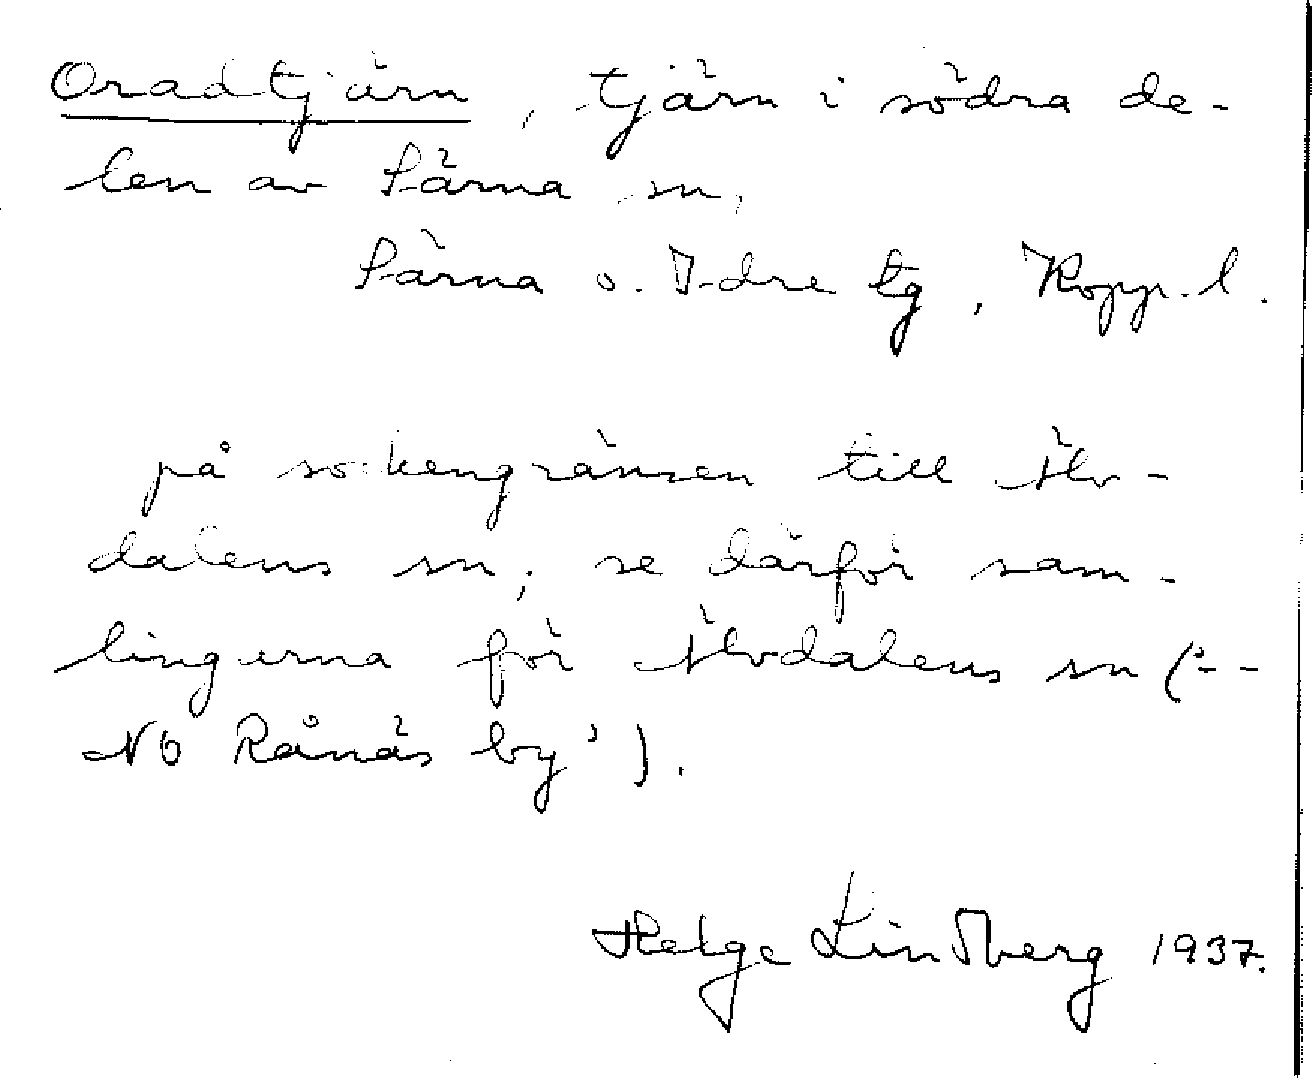 Oradtjärn, tjärn i södra de-
len av Särna sn,
Särna o. Idre tg, Kopp. l.
på sockengränsen till Älv-
dalens sn; se därför sam-
lingarna för Älvdalens sn ("--
NO Rånäs by").
Helge Lindberg 1937.